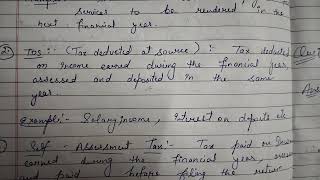 services to be rendered in the
next financial year.
TDS :- (Tax deducted at source) : Tax deducted
on income earned during the financial year,
assessed and deposited in the same
year.
Example:- Salary income, interest on deposits etc
Self - Assessment Tax:- Tax paid on
earned during the financial year,
and paid before filing the return